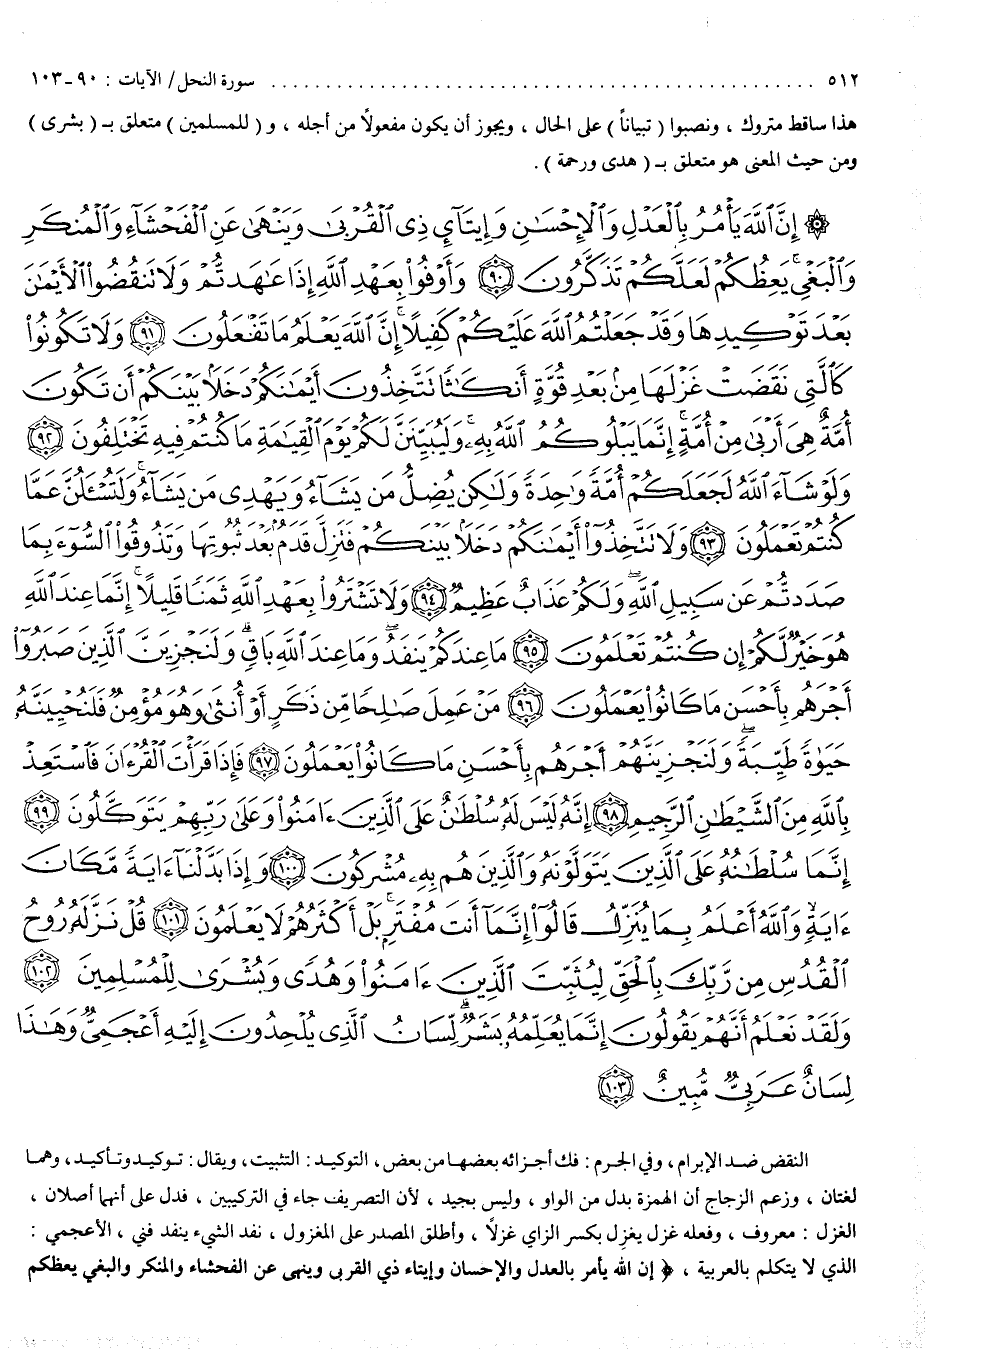 ٥١٢ ........................................ سورة النحل / الآيات : ٩٠ ـ ١٠٣
هذا ساقط متروك ، ونصبوا ( تبياناً ) على الحال ، ويجوز أن يكون مفعولاً من أجله ، و ( للمسلمين ) متعلق بـ ( بشرى )
ومن حيث المعنى هو متعلق بـ ( هدى ورحمة ) .
۞ إِنَّ ٱللَّهَ يَأْمُرُ بِٱلْعَدْلِ وَٱلْإِحْسَٰنِ وَإِيتَآئِ ذِى ٱلْقُرْبَىٰ وَيَنْهَىٰ عَنِ ٱلْفَحْشَآءِ وَٱلْمُنكَرِ
وَٱلْبَغْىِ ۚ يَعِظُكُمْ لَعَلَّكُمْ تَذَكَّرُونَ ﴿٩٠﴾ وَأَوْفُوا۟ بِعَهْدِ ٱللَّهِ إِذَا عَٰهَدتُّمْ وَلَا تَنقُضُوا۟ ٱلْأَيْمَٰنَ
بَعْدَ تَوْكِيدِهَا وَقَدْ جَعَلْتُمُ ٱللَّهَ عَلَيْكُمْ كَفِيلًا ۚ إِنَّ ٱللَّهَ يَعْلَمُ مَا تَفْعَلُونَ ﴿٩١﴾ وَلَا تَكُونُوا۟
كَٱلَّتِى نَقَضَتْ غَزْلَهَا مِنۢ بَعْدِ قُوَّةٍ أَنكَٰثًا تَتَّخِذُونَ أَيْمَٰنَكُمْ دَخَلًۢا بَيْنَكُمْ أَن تَكُونَ
أُمَّةٌ هِىَ أَرْبَىٰ مِنْ أُمَّةٍ ۚ إِنَّمَا يَبْلُوكُمُ ٱللَّهُ بِهِۦ ۚ وَلَيُبَيِّنَنَّ لَكُمْ يَوْمَ ٱلْقِيَٰمَةِ مَا كُنتُمْ فِيهِ تَخْتَلِفُونَ ﴿٩٢﴾
وَلَوْ شَآءَ ٱللَّهُ لَجَعَلَكُمْ أُمَّةً وَٰحِدَةً وَلَٰكِن يُضِلُّ مَن يَشَآءُ وَيَهْدِى مَن يَشَآءُ ۚ وَلَتُسْـَٔلُنَّ عَمَّا
كُنتُمْ تَعْمَلُونَ ﴿٩٣﴾ وَلَا تَتَّخِذُوٓا۟ أَيْمَٰنَكُمْ دَخَلًۢا بَيْنَكُمْ فَتَزِلَّ قَدَمٌۢ بَعْدَ ثُبُوتِهَا وَتَذُوقُوا۟ ٱلسُّوٓءَ بِمَا
صَدَدتُّمْ عَن سَبِيلِ ٱللَّهِ ۖ وَلَكُمْ عَذَابٌ عَظِيمٌ ﴿٩٤﴾ وَلَا تَشْتَرُوا۟ بِعَهْدِ ٱللَّهِ ثَمَنًا قَلِيلًا ۚ إِنَّمَا عِندَ ٱللَّهِ
هُوَ خَيْرٌ لَّكُمْ إِن كُنتُمْ تَعْلَمُونَ ﴿٩٥﴾ مَا عِندَكُمْ يَنفَدُ ۖ وَمَا عِندَ ٱللَّهِ بَاقٍ ۗ وَلَنَجْزِيَنَّ ٱلَّذِينَ صَبَرُوٓا۟
أَجْرَهُم بِأَحْسَنِ مَا كَانُوا۟ يَعْمَلُونَ ﴿٩٦﴾ مَنْ عَمِلَ صَٰلِحًا مِّن ذَكَرٍ أَوْ أُنثَىٰ وَهُوَ مُؤْمِنٌ فَلَنُحْيِيَنَّهُۥ
حَيَوٰةً طَيِّبَةً ۖ وَلَنَجْزِيَنَّهُمْ أَجْرَهُم بِأَحْسَنِ مَا كَانُوا۟ يَعْمَلُونَ ﴿٩٧﴾ فَإِذَا قَرَأْتَ ٱلْقُرْءَانَ فَٱسْتَعِذْ
بِٱللَّهِ مِنَ ٱلشَّيْطَٰنِ ٱلرَّجِيمِ ﴿٩٨﴾ إِنَّهُۥ لَيْسَ لَهُۥ سُلْطَٰنٌ عَلَى ٱلَّذِينَ ءَامَنُوا۟ وَعَلَىٰ رَبِّهِمْ يَتَوَكَّلُونَ ﴿٩٩﴾
إِنَّمَا سُلْطَٰنُهُۥ عَلَى ٱلَّذِينَ يَتَوَلَّوْنَهُۥ وَٱلَّذِينَ هُم بِهِۦ مُشْرِكُونَ ﴿١٠٠﴾ وَإِذَا بَدَّلْنَآ ءَايَةً مَّكَانَ
ءَايَةٍ ۙ وَٱللَّهُ أَعْلَمُ بِمَا يُنَزِّلُ قَالُوٓا۟ إِنَّمَآ أَنتَ مُفْتَرٍۭ ۚ بَلْ أَكْثَرُهُمْ لَا يَعْلَمُونَ ﴿١٠١﴾ قُلْ نَزَّلَهُۥ رُوحُ
ٱلْقُدُسِ مِن رَّبِّكَ بِٱلْحَقِّ لِيُثَبِّتَ ٱلَّذِينَ ءَامَنُوا۟ وَهُدًى وَبُشْرَىٰ لِلْمُسْلِمِينَ ﴿١٠٢﴾
وَلَقَدْ نَعْلَمُ أَنَّهُمْ يَقُولُونَ إِنَّمَا يُعَلِّمُهُۥ بَشَرٌ ۗ لِّسَانُ ٱلَّذِى يُلْحِدُونَ إِلَيْهِ أَعْجَمِىٌّ وَهَٰذَا
لِسَانٌ عَرَبِىٌّ مُّبِينٌ ﴿١٠٣﴾
النقض ضد الإبرام ، وفي الجرم : فك أجزائه بعضها من بعض ، التوكيد : التثبيت ، ويقال : توكيد وتأكيد ، وهما
لغتان ، وزعم الزجاج أن الهمزة بدل من الواو ، وليس بجيد ، لأن التصريف جاء في التركيبين ، فدل على أنهما أصلان ،
الغزل : معروف ، وفعله غزل يغزِل بكسر الزاي غزلاً ، وأطلق المصدر على المغزول ، نفد الشيء ينفد فني ، الأعجمي :
الذي لا يتكلم بالعربية ، ﴿ إن الله يأمر بالعدل والإحسان وإيتاء ذي القربى وينهى عن الفحشاء والمنكر والبغي يعظكم